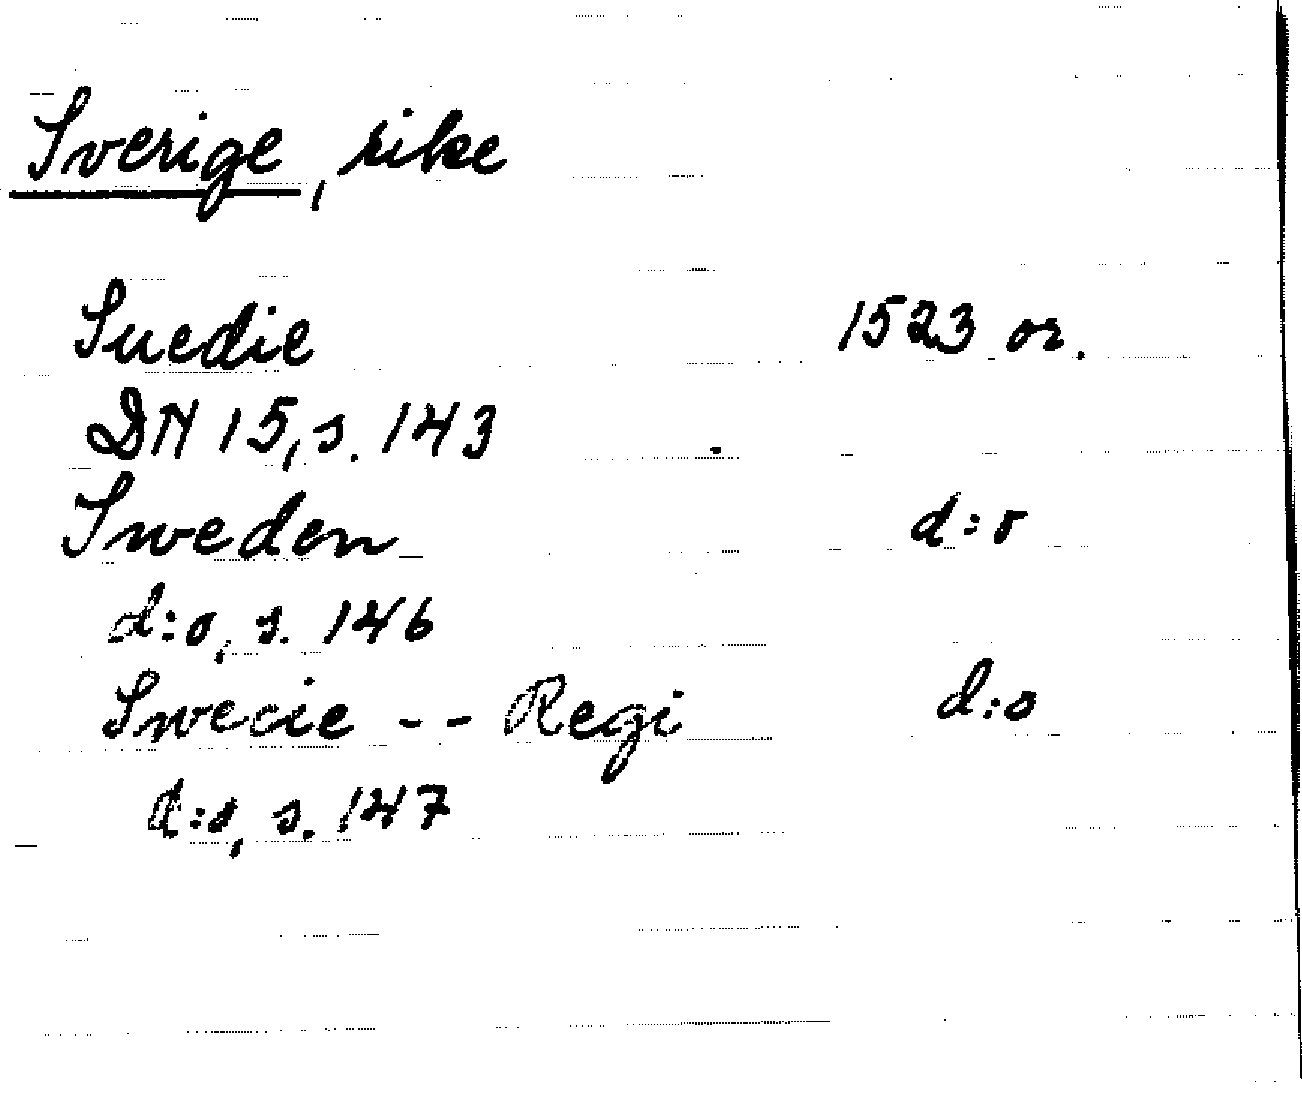 Sverige, rike
Suedie 1523 or.
DN 15, s. 143
Sweden d:o
d:o, s. 146
Swecie -- Regi d:o
d:o, s. 147